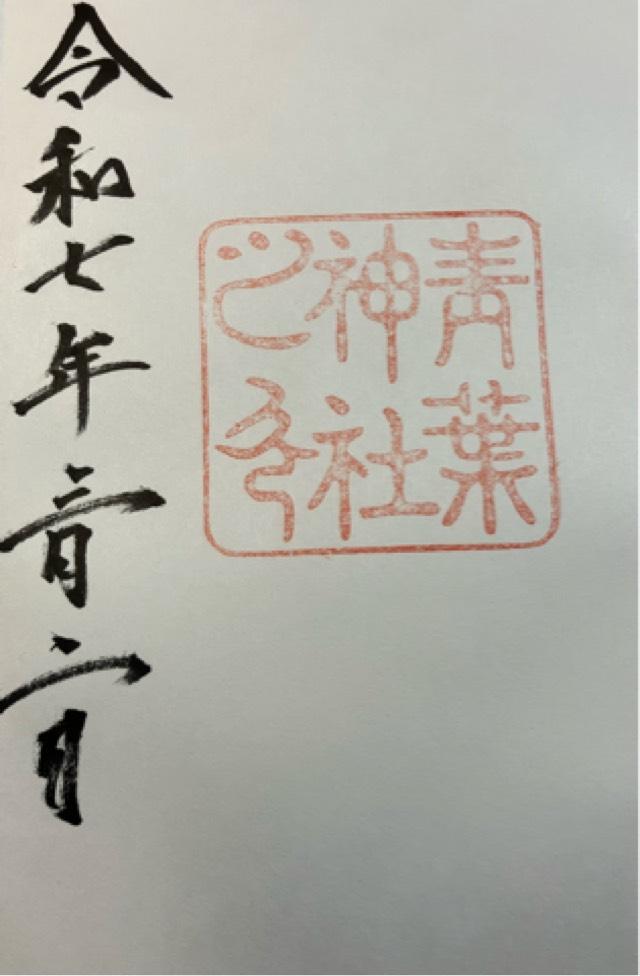 青葉
神社
之印
令和七年二月二日